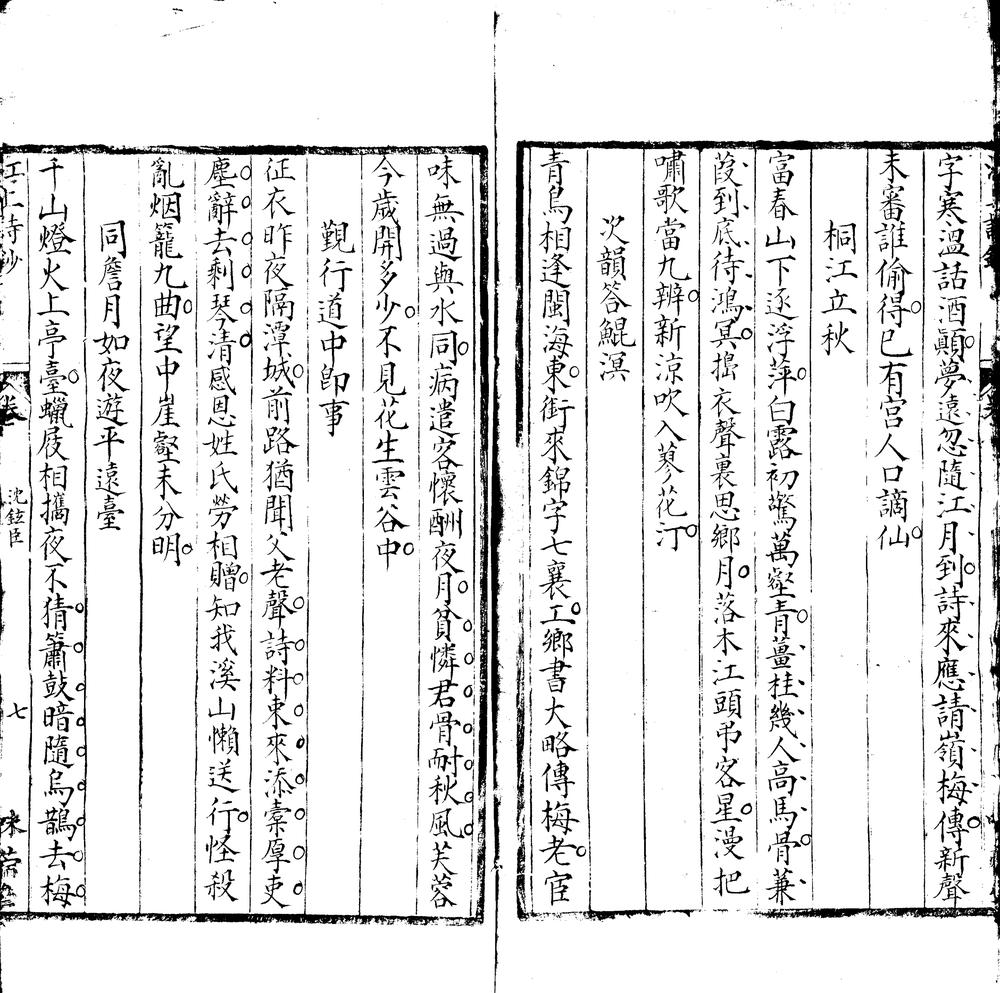 字寒溫話酒顛夢遠忽隨江月到詩來應請嶺梅傳新聲
未審誰偷得已有宮人口謫仙
桐江立秋
富春山下逐浮萍白露初驚萬壑青薑桂幾人高馬骨蒹
葭到底待鴻冥搗衣聲裏思鄉月落木江頭弔客星漫把
嘯歌當九辨新涼吹入蓼花汀
次韻答鯤溟
青鳥相逢閩海東銜來錦字七襄工鄉書大略傳梅老宦
味無過與水同病遣客懷酬夜月貧憐君骨耐秋風芙蓉
今歲開多少不見花生雲谷中
覲行道中卽事
征衣昨夜隔潭城前路猶聞父老聲詩料束來添橐厚吏
塵辭去剩琴清感恩姓氏勞相贈知我溪山懶送行怪殺
亂烟籠九曲望中崖壑未分明
同詹月如夜遊平遠臺
千山燈火上亭臺蠟屐相攜夜不猜簫鼓暗隨烏鵲去梅
卷
沈鉉臣
七